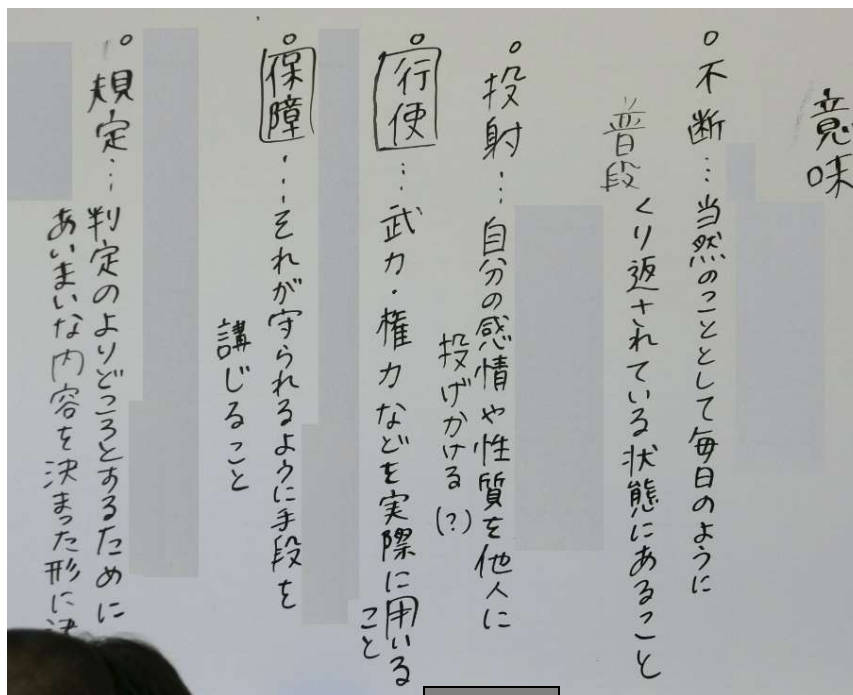 意味
○不断…当然のこととして毎日のように
普段
くり返されている状態にあること
○投射…自分の感情や性質を他人に
投げかける(?)
○行使…武力・権力などを実際に用いる
こと
○保障…それが守られるように手段を
講じること
○規定…判定のよりどころとするために
あいまいな内容を決まった形に